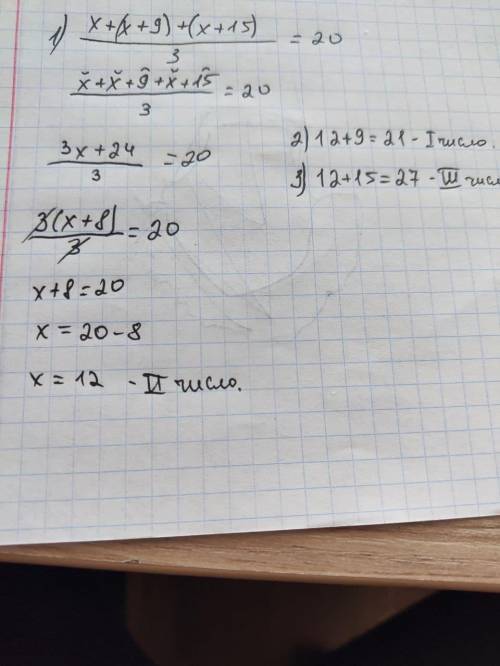 1) (x+(x+9)+(x+15))/3 = 20
(x+x+9+x+15)/3 = 20
(3x+24)/3 = 20
3(x+8)/3 = 20
x+8=20
x = 20-8
x = 12 - II число.
2) 12+9=21 - I число.
3) 12+15=27 - III числ